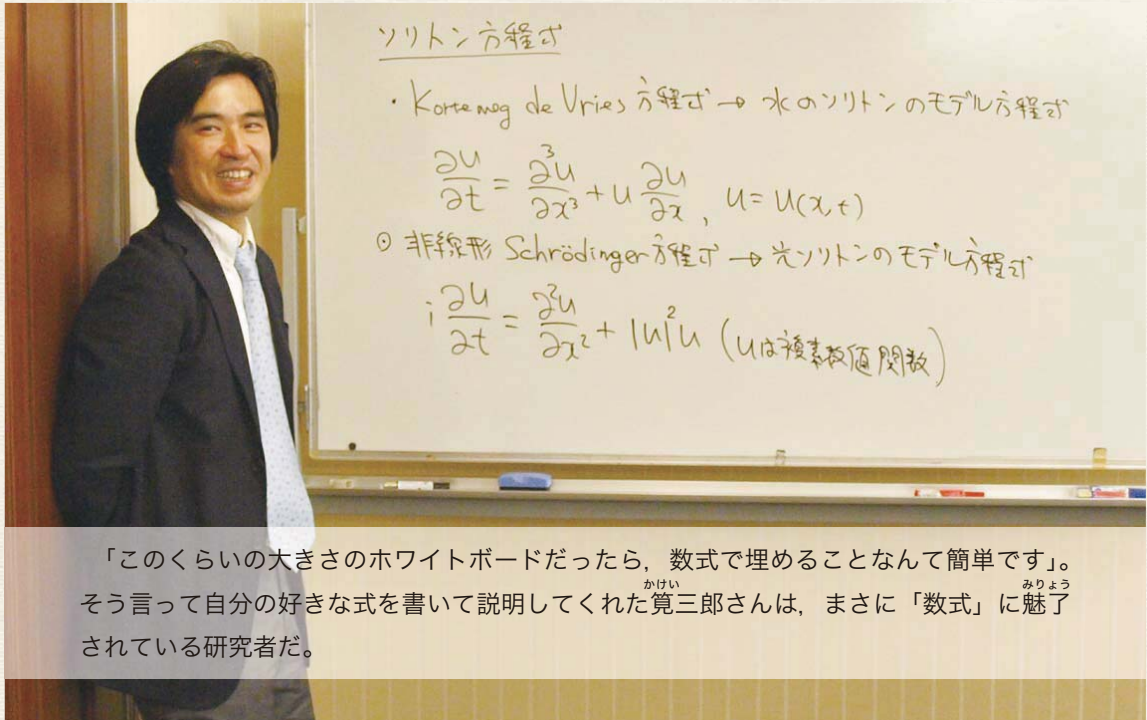 ソリトン方程式
・Korteweg de Vries 方程式 → 水のソリトンのモデル方程式
∂u/∂t = ∂³u/∂x³ + u ∂u/∂x, u = u(x,t)
⊙ 非線形 Schrödinger 方程式 → 光ソリトンのモデル方程式
i ∂u/∂t = ∂²u/∂x² + |u|²u (uは複素数値関数)
「このくらいの大きさのホワイトボードだったら，数式で埋めることなんて簡単です」。
そう言って自分の好きな式を書いて説明してくれた筧三郎さんは，まさに「数式」に魅了
かけい
みりょう
されている研究者だ。